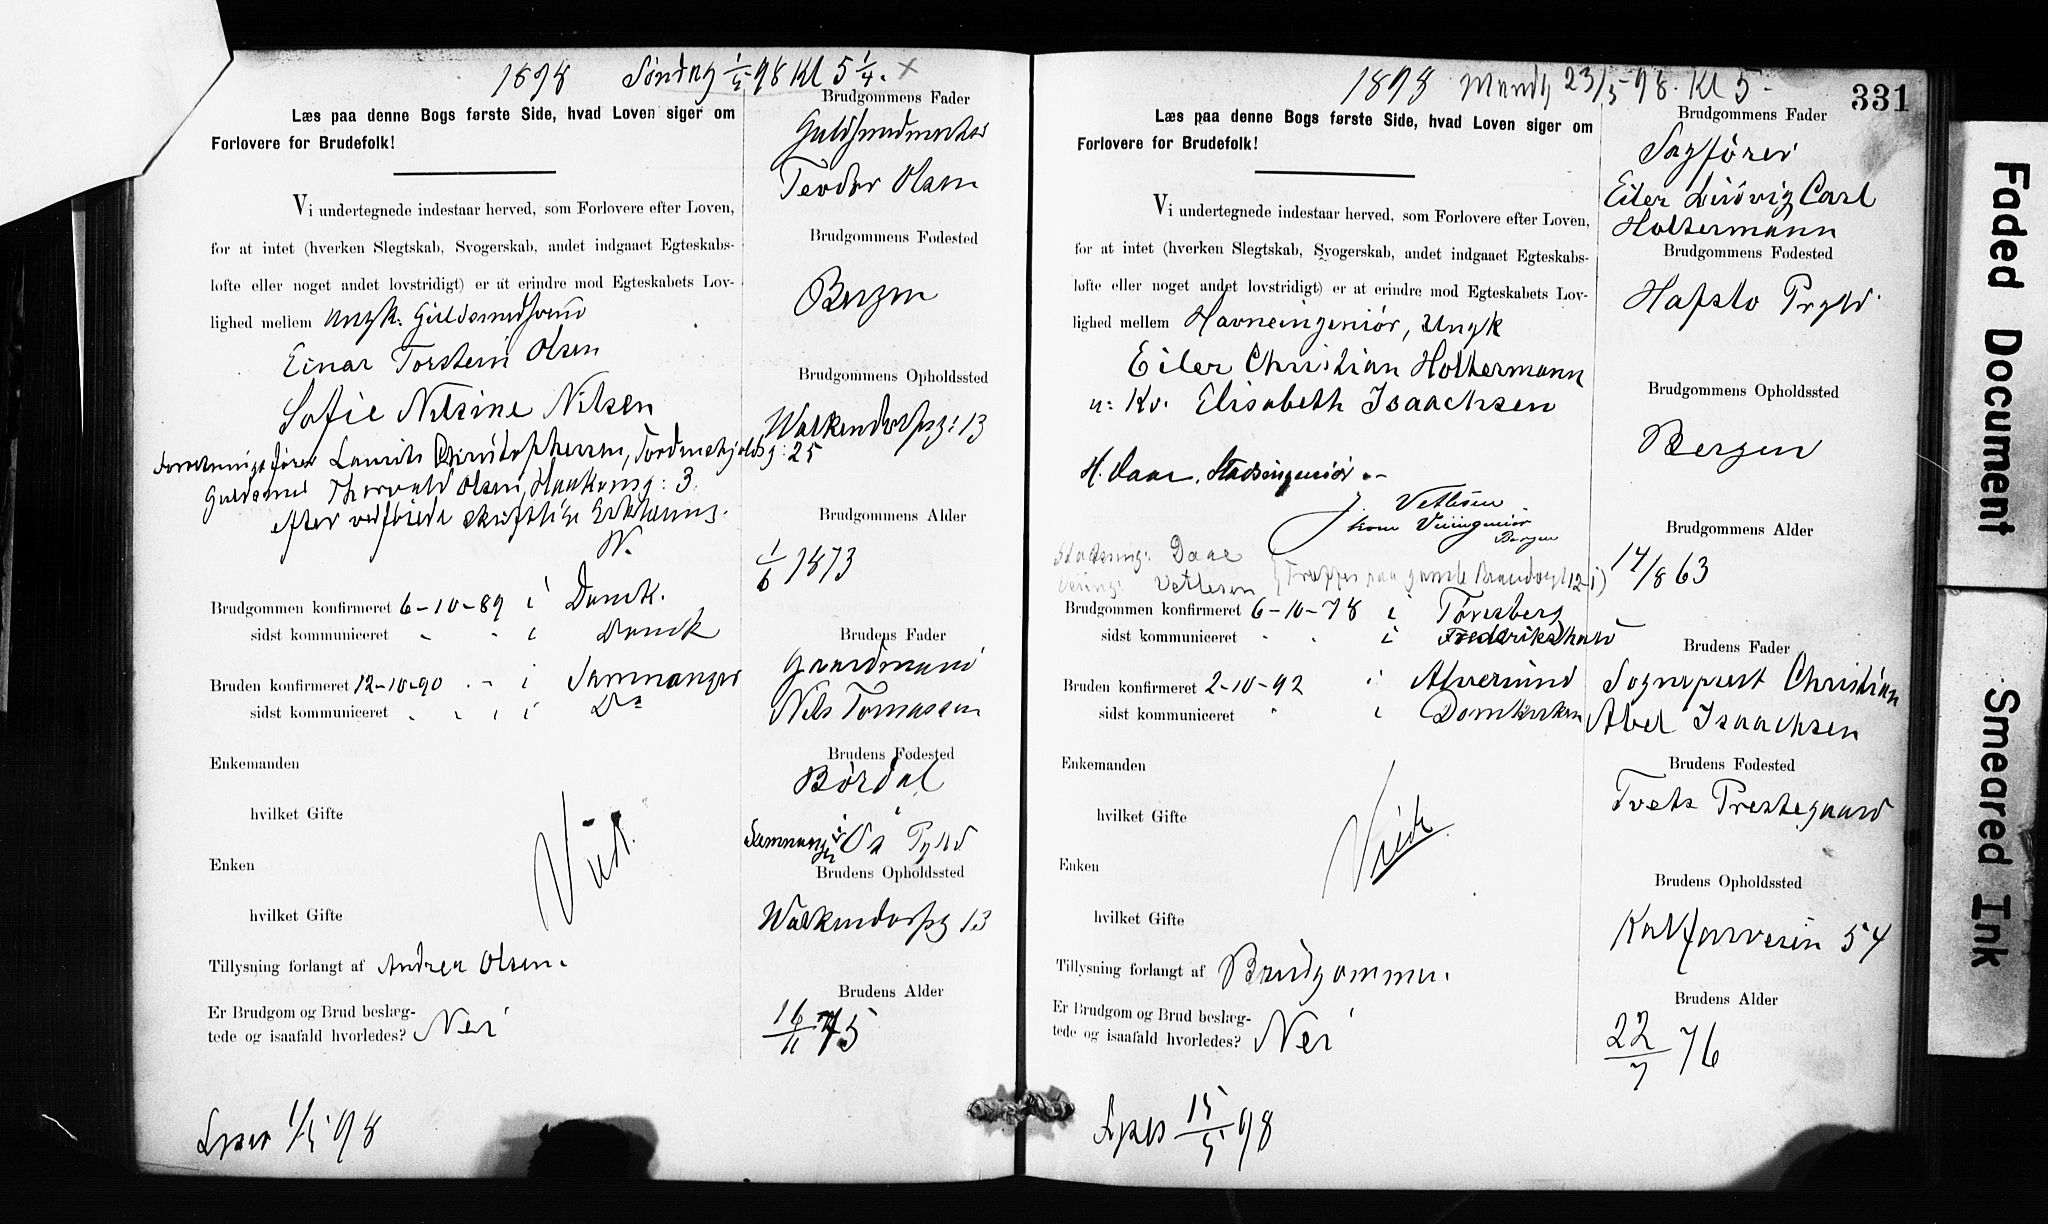 1898 Søndag 1/5-98 Kl 5 1/4. x
Læs paa denne Bogs første Side, hvad Loven siger om
Forlovere for Brudefolk!
Vi undertegnede indestaar herved, som Forlovere efter Loven,
for at intet (hverken Slegtskab, Svogerskab, andet indgaaet Egteskabs-
løfte eller noget andet lovstridigt) er at erindre mod Egteskabets Lov-
lighed mellem Ungk. Guldsmedsvend
Einar Torstein Olsen
Sofie Nilsine Nilsen
Laurits Christophersen, Tordenskjoldsg: 25
Guldsmed Thorvald Olsen, Haakonsg: 3
efter vedføiede skriftlige Erklæring.
W.
Brudgommen konfirmeret 6-10-89 i Domk.
sidst kommuniceret " " i Domk
Bruden konfirmeret 12-10-90 - i Sammanger
sidst kommuniceret " " i Do
Enkemanden
hvilket Gifte
Enken
hvilket Gifte
Viet.
Tillysning forlangt af Andrea Olsen.
Er Brudgom og Brud beslæg-
tede og isaafald hvorledes? Nei
Lyses 1/5 98
Brudgommens Fader
Teodor Olsen
Brudgommens Fødested
Bergen
Brudgommens Opholdssted
Walkendorfsg: 13
Brudgommens Alder
1/6 1873
Brudens Fader
Gaardmand
Nils Tomassen
Brudens Fødested
Børdal
i
Samnanger Os Pgld
Brudens Opholdssted
Walkendorfsg 13
Brudens Alder
16/11 75
1898 Mandg 23/5-98. Kl 5-
331
Læs paa denne Bogs første Side, hvad Loven siger om
Forlovere for Brudefolk!
Vi undertegnede indestaar herved, som Forlovere efter Loven,
for at intet (hverken Slegtskab, Svogerskab, andet indgaaet Egteskabs-
løfte eller noget andet lovstridigt) er at erindre mod Egteskabets Lov-
lighed mellem Havneingeniør, Ungk
Eiler Christian Holtermann
u: Kv. Elisabeth Isaachsen
H. Daae, Stadsingeniør.-
J. Vetlesen
kom Veiingeniør
Bergen
Stadsing: Daae
Veiing: Vetlesen
Brudgommen konfirmeret 6-10-78 i Tønsberg
sidst kommuniceret " " i Fredrikshald
Bruden konfirmeret 2-10-92 i Alversund
sidst kommuniceret " i Domkirken
Enkemanden
hvilket Gifte
Enken
hvilket Gifte
Viede
Tillysning forlangt af Brudgommen.
Er Brudgom og Brud beslæg-
tede og isaafald hvorledes? Nei
Lyses 15/5 98
Brudgommens Fader
Sagfører
Eiler Ludvig Carl
Holtermann
Brudgommens Fødested
Hafslo Prgld.
Brudgommens Opholdssted
Bergen
Brudgommens Alder
14/8 63
Brudens Fader
Sogneprest Christian
Abel Isaachsen
Brudens Fødested
Tvets Prestegaard
Brudens Opholdssted
Kalfarveien 54
Brudens Alder
22/7 76
Faded Document
Smeared Ink